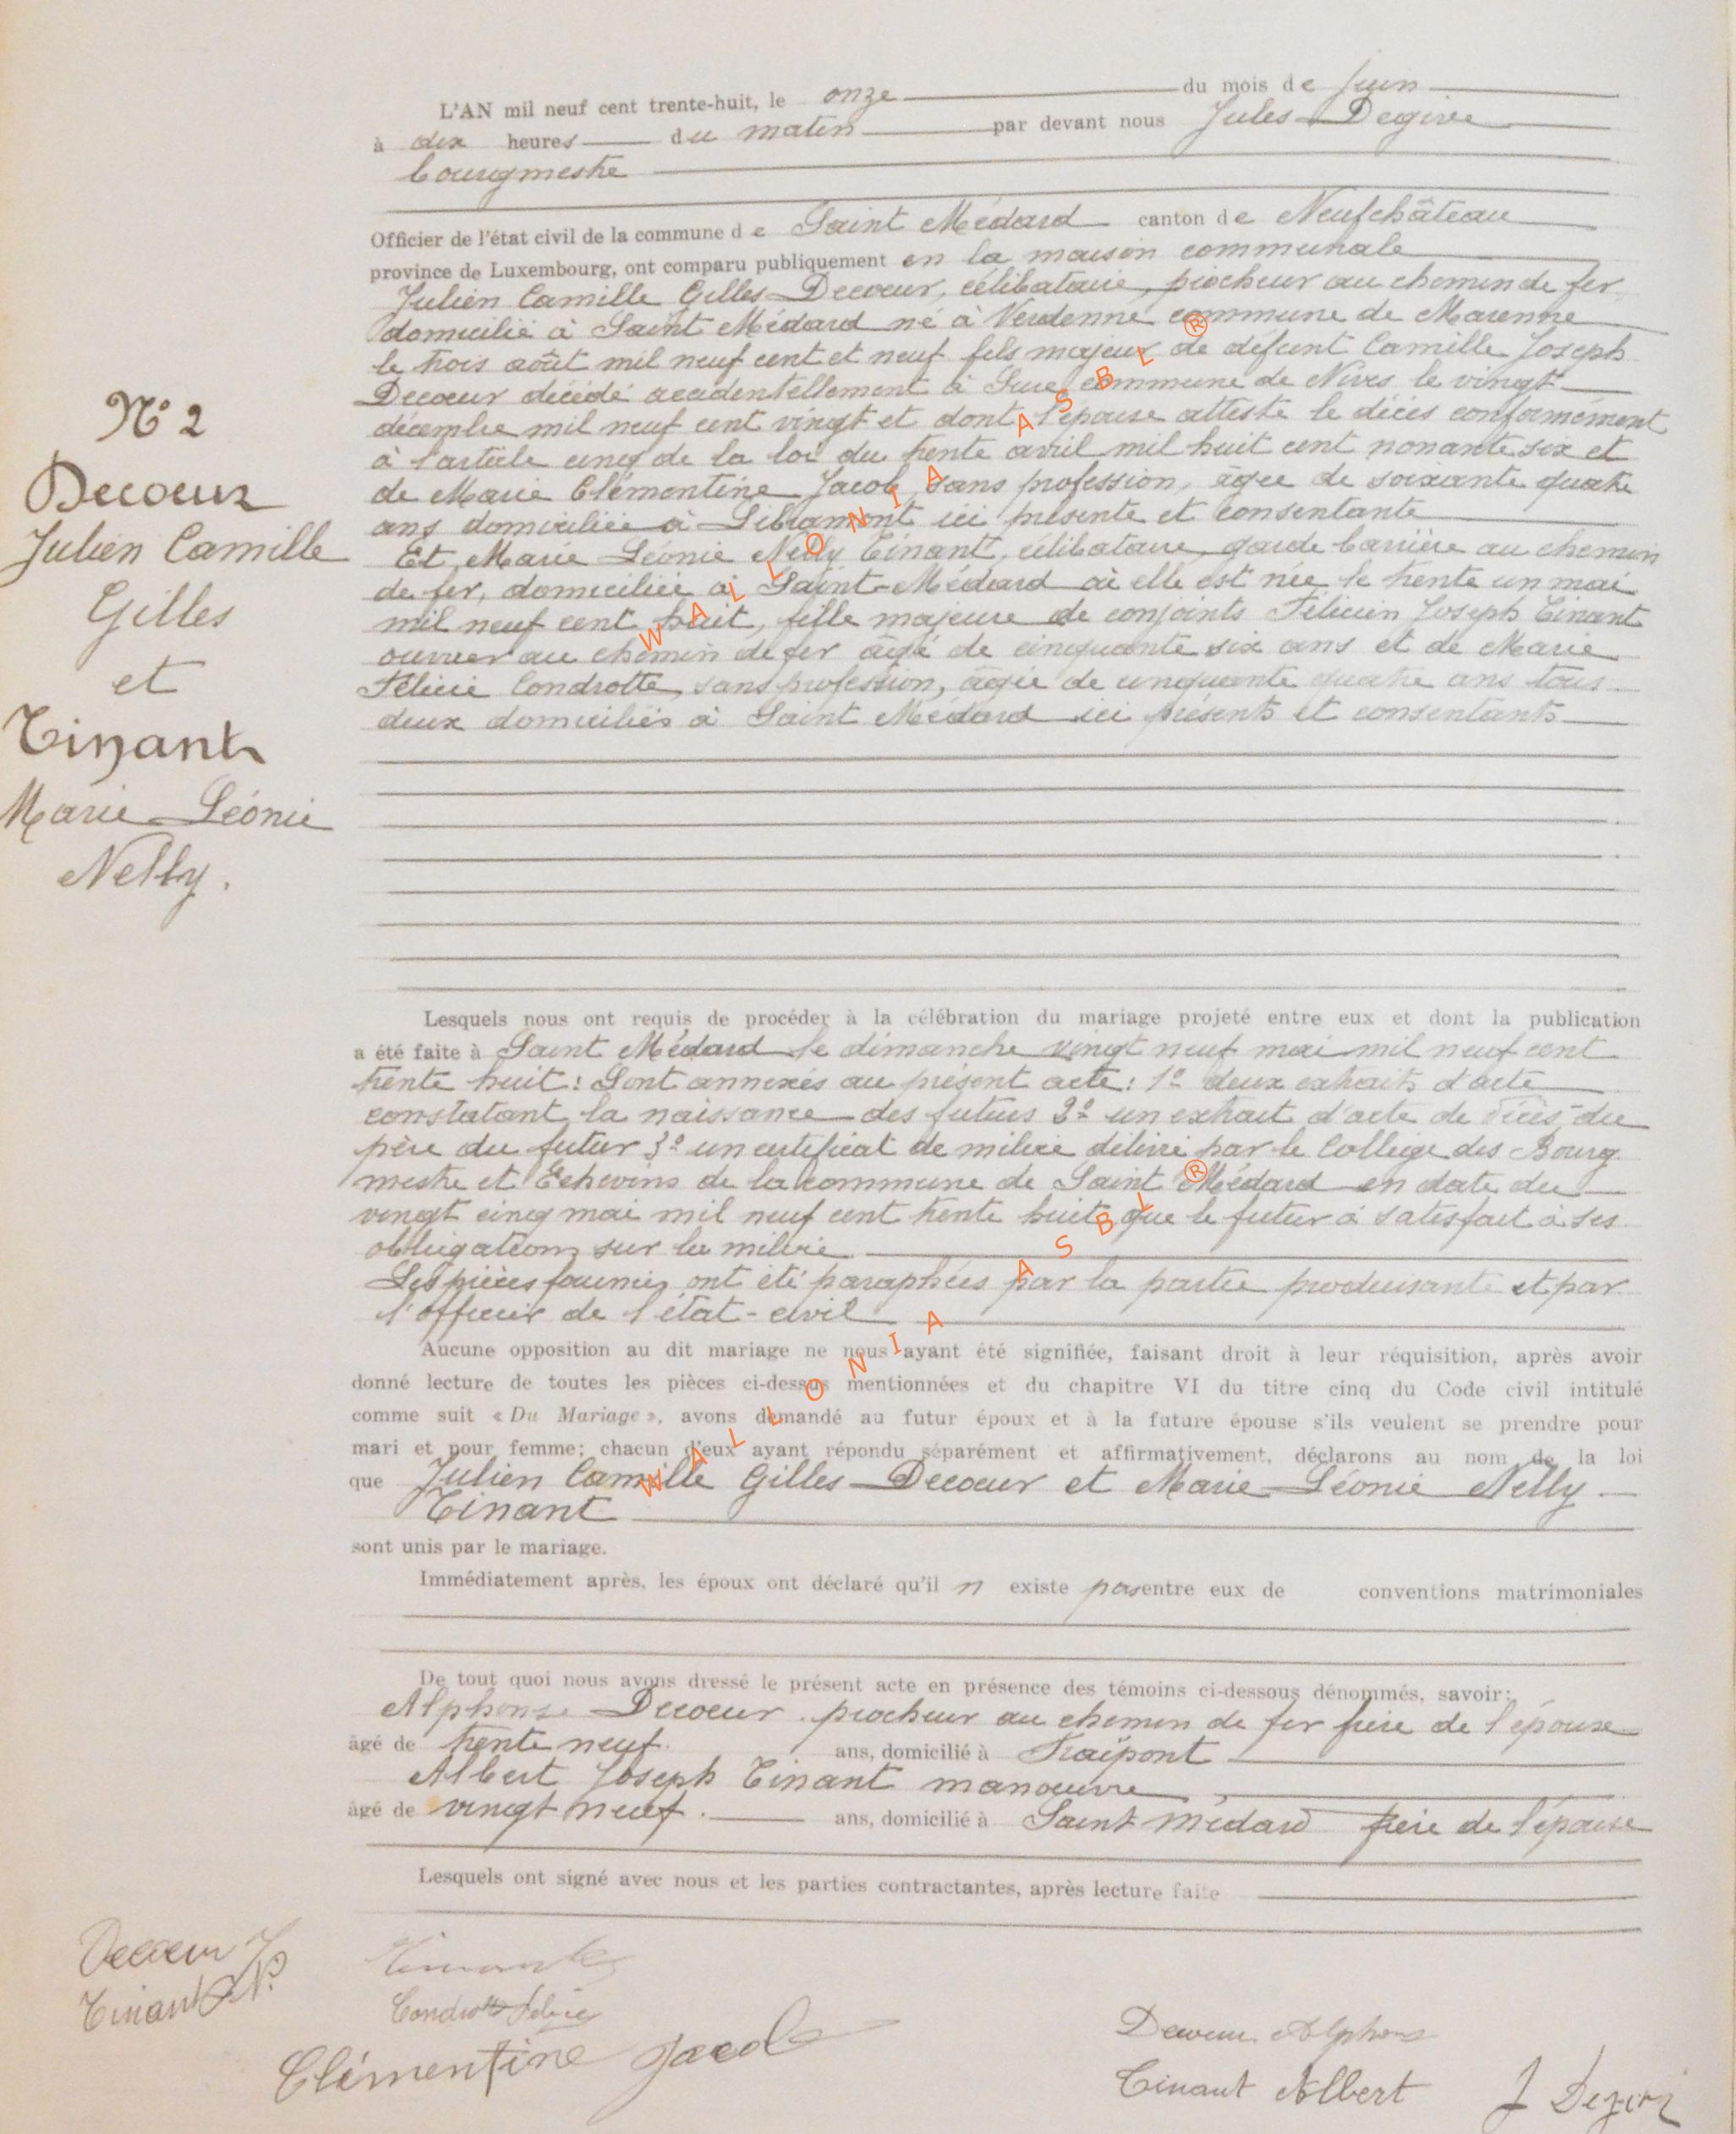 L'AN mil neuf cent trente-huit, le onze du mois de Juin
à dix heures du matin par devant nous Jules Degive
bourgmestre
Officier de l'état civil de la commune de Saint Médard canton de Neufchâteau
province de Luxembourg, ont comparu publiquement en la maison communale
Julien Camille Gilles Decoeur, célibataire, piocheur au chemin de fer
domicilié à Saint Médard né à Verdenne commune de Marenne
le trois août mil neuf cent et neuf fils majeur de défunt Camille Joseph
Decoeur décédé accidentellement à Sure commune de Nives le vingt
décembre mil neuf cent vingt et dont l'épouse atteste le décès conformément
à l'article cinq de la loi du trente avril mil huit cent nonante six et
de Marie Clémentine Jacob, sans profession, âgée de soixante quatre
ans domiciliée à Libramont ici présente et consentante
Et Marie Léonie Nelly Tinant, célibataire, garde barrière au chemin
de fer, domiciliée à Saint-Médard où elle est née le trente un mai
mil neuf cent huit, fille majeure de conjoints Félicien Joseph Tinant
ouvrier au chemin de fer âgé de cinquante six ans et de Marie
Félicie Condrotte, sans profession, âgée de cinquante quatre ans tous
deux domiciliés à Saint Médard ici présents et consentants
N° 2
Decoeur
Julien Camille
Gilles
et
Tinant
Marie Léonie
Nelly.
Lesquels nous ont requis de procéder à la célébration du mariage projeté entre eux et dont la publication
a été faite à Saint Médard le dimanche vingt neuf mai mil neuf cent
trente huit : Sont annexés au présent acte : 1° deux extraits d'acte
constatant la naissance des futurs 2° un extrait d'acte de décès du
père du futur 3° un certificat de milice délivré par le Collège des Bourg
mestre et Echevins de la commune de Saint Médard en date du
vingt cinq mai mil neuf cent trente huit que le futur a satisfait à ses
obligations sur la milice
Les pièces fournies ont été paraphées par la partie produisante et par
l'officier de l'état-civil
Aucune opposition au dit mariage ne nous ayant été signifiée, faisant droit à leur réquisition, après avoir
donné lecture de toutes les pièces ci-dessus mentionnées et du chapitre VI du titre cinq du Code civil intitulé
comme suit « Du Mariage », avons demandé au futur époux et à la future épouse s'ils veulent se prendre pour
mari et pour femme; chacun d'eux ayant répondu séparément et affirmativement, déclarons au nom de la loi
que Julien Camille Gilles Decoeur et Marie Léonie Nelly
Tinant
sont unis par le mariage.
Immédiatement après, les époux ont déclaré qu'il n existe pas entre eux de conventions matrimoniales
De tout quoi nous avons dressé le présent acte en présence des témoins ci-dessous dénommés, savoir:
Alphonse Decoeur piocheur au chemin de fer frère de l'épouse
âgé de trente neuf. ans, domicilié à Fraipont
Albert Joseph Tinant manoeuvre
âgé de vingt neuf. ans, domicilié à Saint Médard frère de l'épouse
Lesquels ont signé avec nous et les parties contractantes, après lecture faite
Decoeur J
Tinant N.
Tinant
Condrotte Félicie
Clémentine Jacob
Decoeur Alphonse
Tinant Albert
J Degive
WALLONIA ASBL ®
WALLONIA ASBL ®